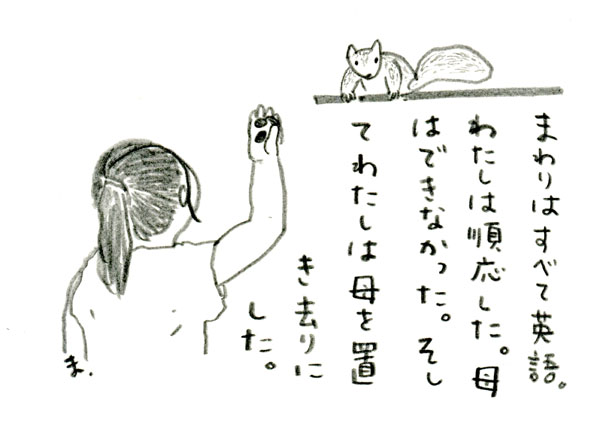 まわりはすべて英語。
わたしは順応した。母
はできなかった。そし
てわたしは母を置
き去りに
した。
ま.